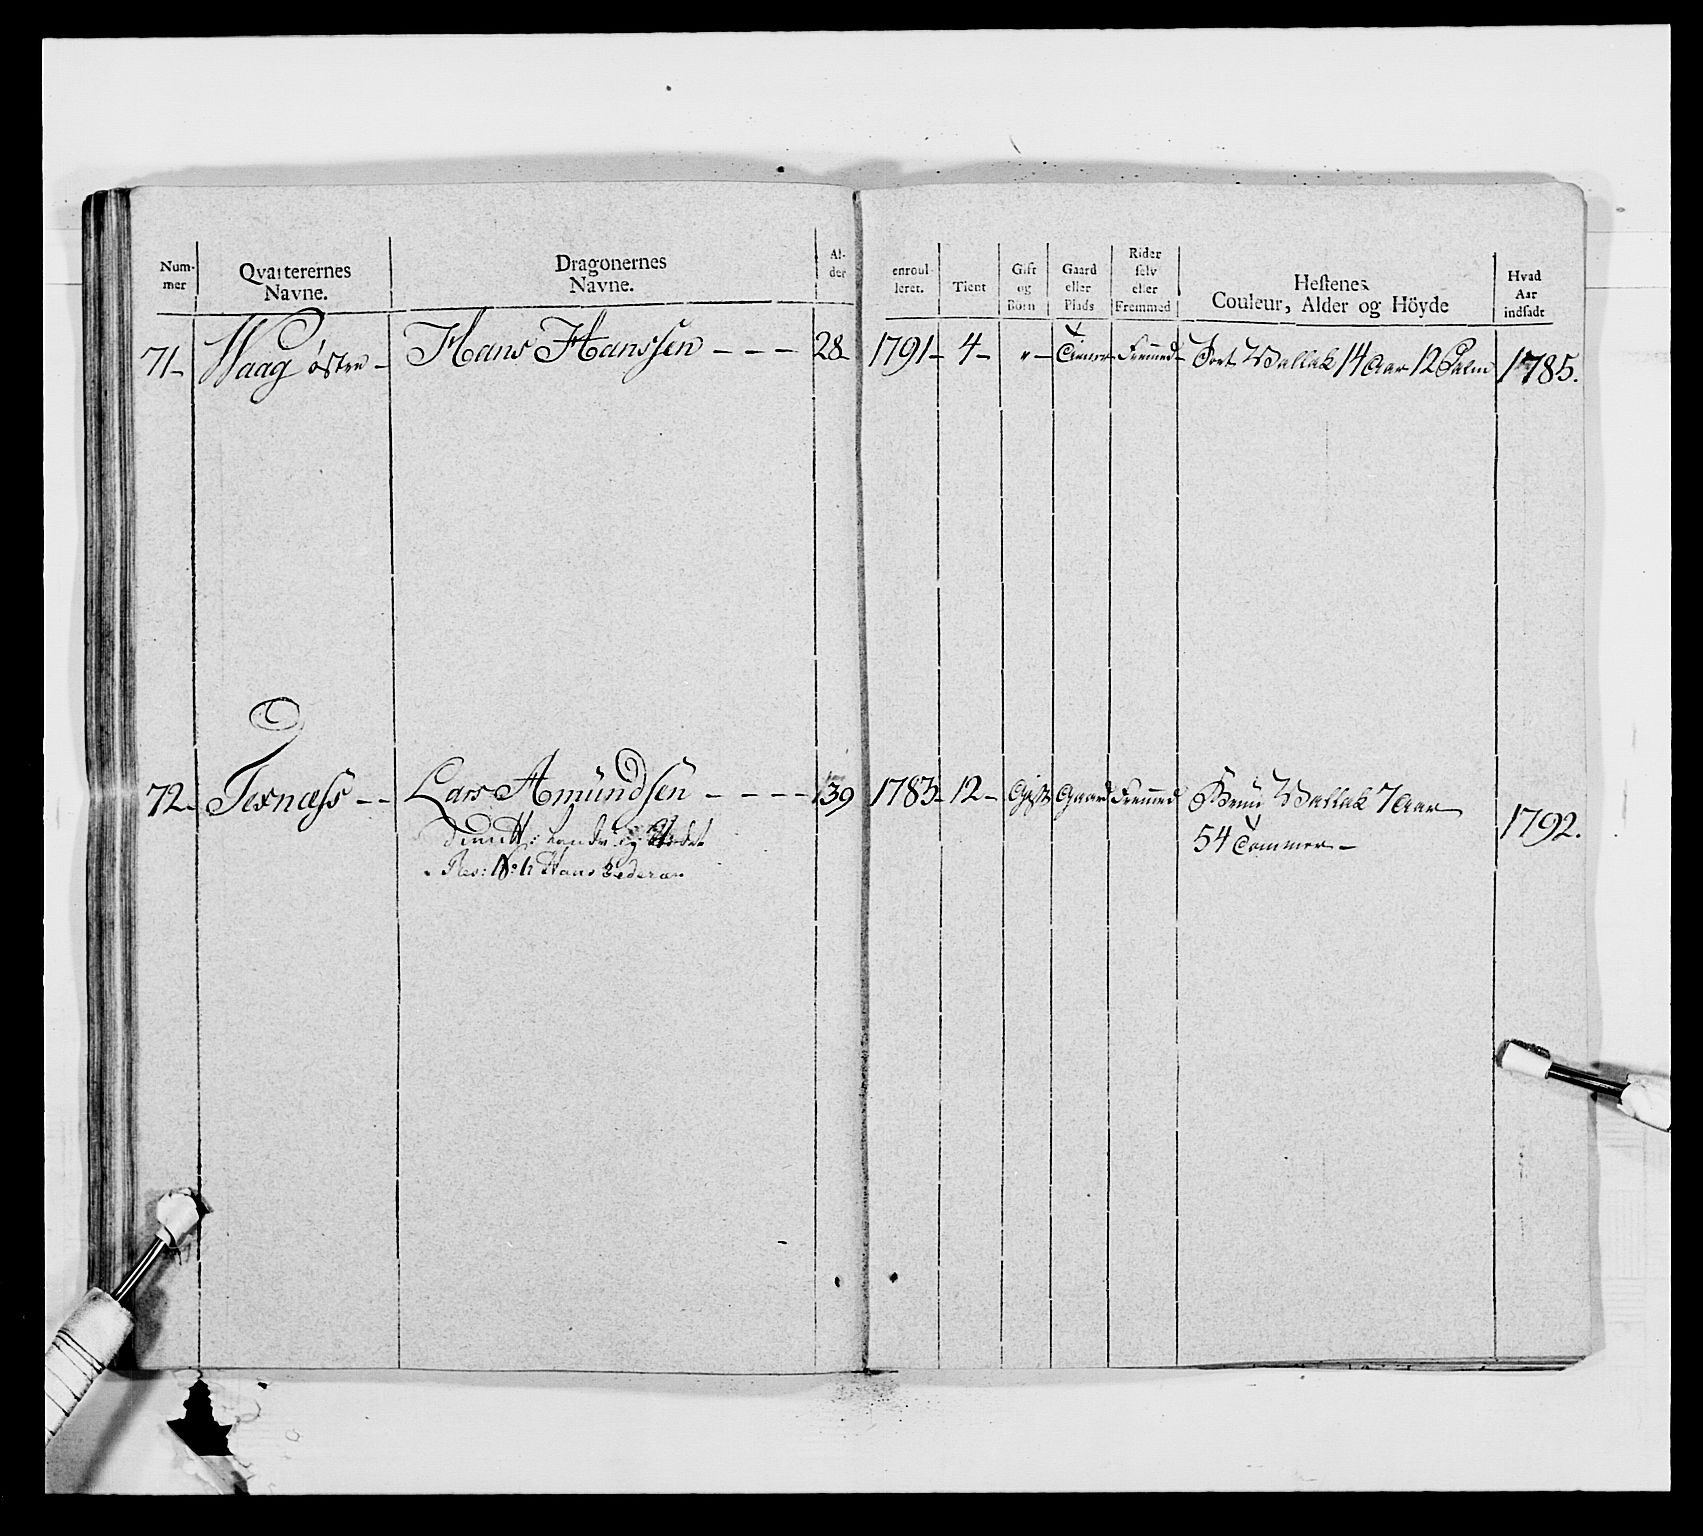 Num-
mer
Qvarterernes
Navne.
Dragonernes
Navne.
Al-
der
enroul-
leret.
Tient
Gift
og
Börn
Gaard
eller
Plads
Rider
selv
eller
Fremmed
Hestenes
Couleur, Alder og Höyde
Hvad
Aar
indsadt
71- Waag østre - Hans Hanssen - - - 28- 1791- 4- Tiener Fremmed- Sort Wallak 14 Aar 12 Palm 1785.
72- Texnæss - - Lars Amundsen - - - - 39 1783- 12- Gift Gaard Fremmed Bruun Wallak 7 Aar
54 Tommer - 1792.
Res: No Hans Peders